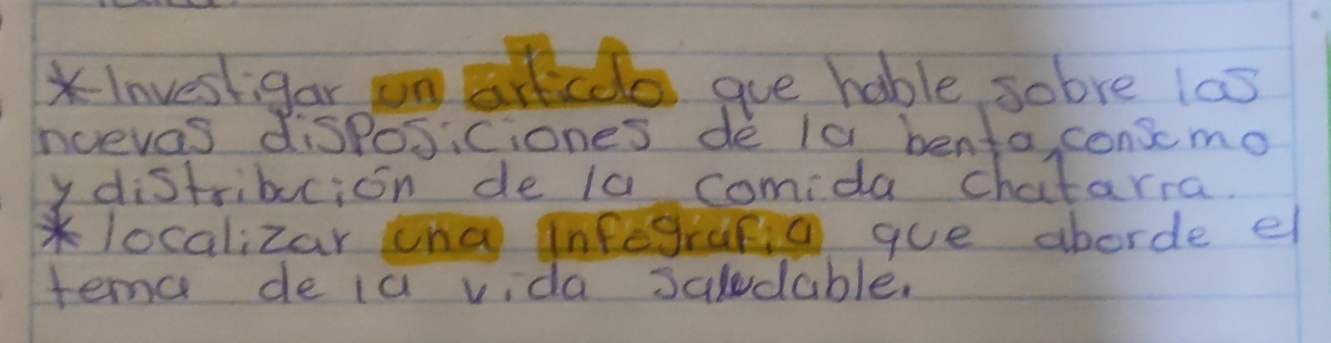 *Investigar un articulo que hable sobre las
nuevas disposiciones de la benta, consumo
y distribución de la comida chatarra.
* localizar una infografia que aborde el
tema de la vida saludable.